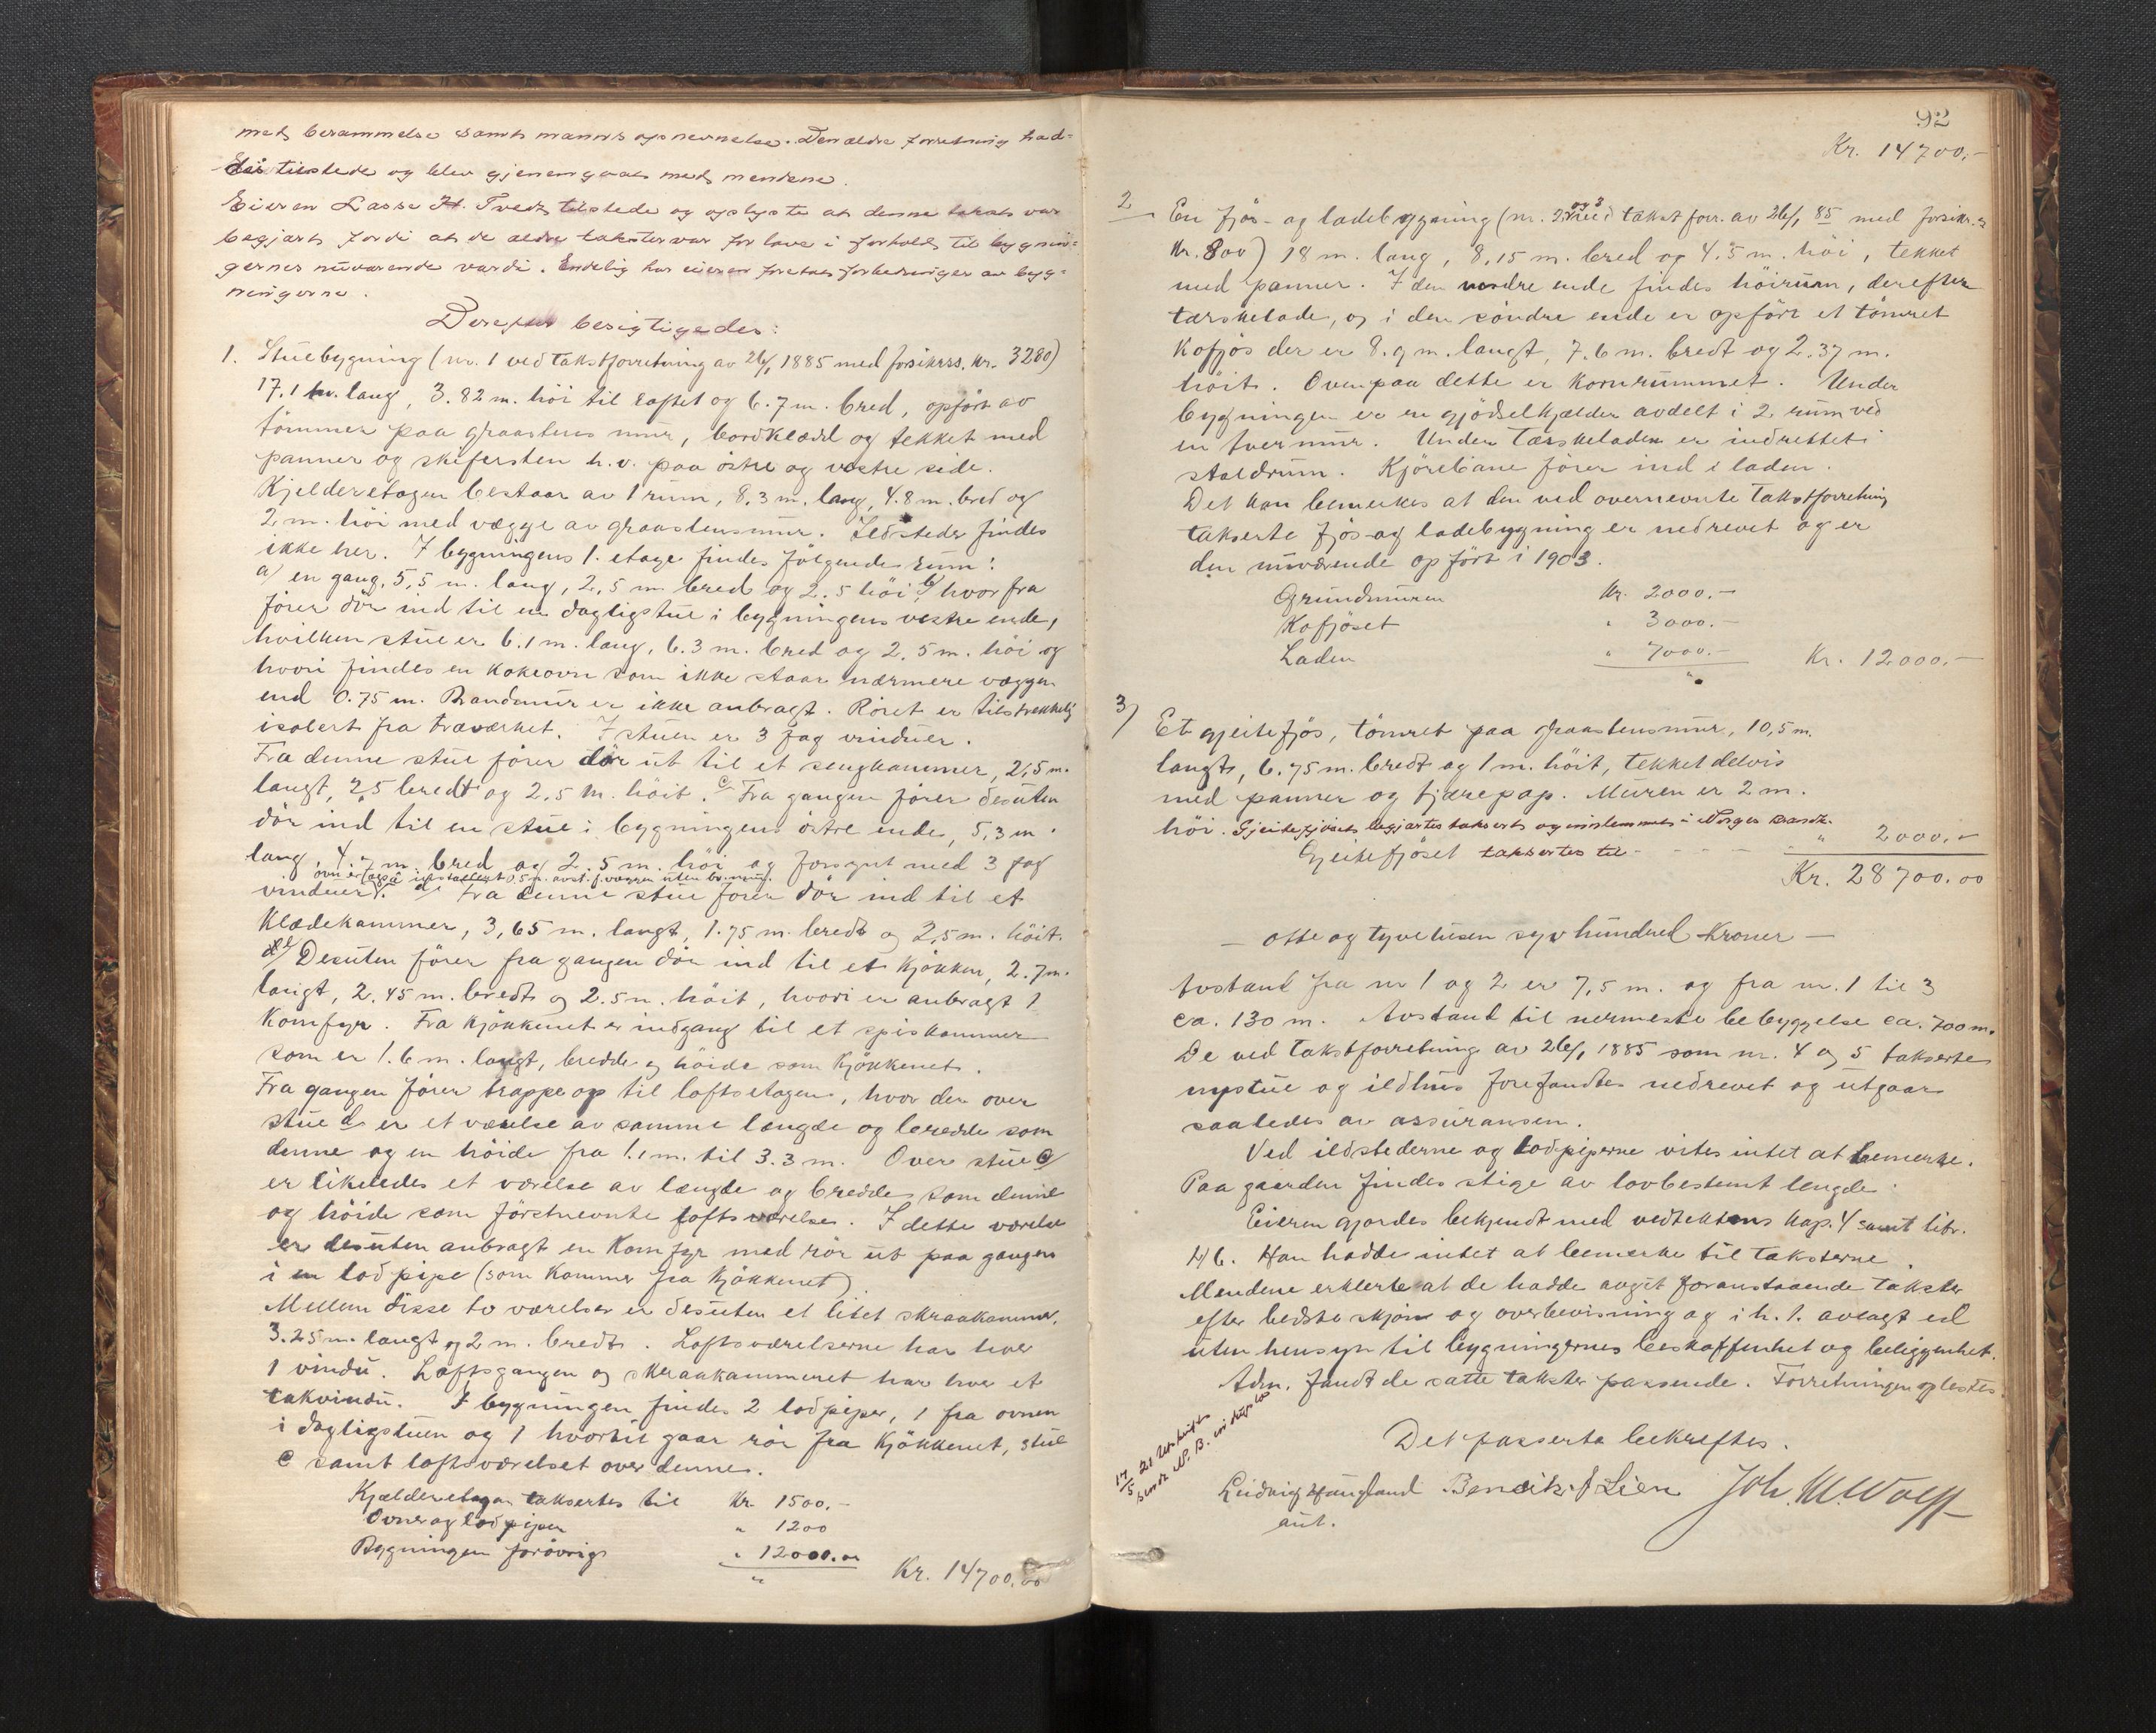 med berammelse samt manns opnevnelse. Den ældre forretning had-
des tilstede og blev gjenemgaaet med mendene.
Eieren Lasse H. Tvedt tilstede og oplyste at denne takst var
begjært fordi at de ældre takster var for lave i forhold til bygnin-
gernes nuværende værdi. Endelig har eieren foretat forbedringer av byg-
ningerne.
Derefter besigtigedes:
1. Stuebygning (nr. 1 ved takstforretning av 26/1 1885 med forsikrss. kr. 3280)
17.1 m. lang, 3.82 m. höi til raftet og 6.7 m. bred, opfört av
tömmer paa graastens mur, bordklædd og tekket med
panner og skifersten h.v. paa östre og vestre side.
Kjelderetagen bestaar av 1 rum, 8.3 m. lang, 4.8 m. bred og
2 m. höi med vægge av graastensmur. Ildsteder findes
ikke her. I bygningens 1. etage findes fölgende rum:
a/ en gang, 5,5 m. lang, 2,5 m bred og 2.5 höi b/ hvorfra
förer dör ind til en dagligstue i bygningens vestre ende,
hvilken stue er 6.1 m. lang, 6.3 m. bred og 2.5 m. höi og
hvori findes en kokeovn som ikke staar nærmere væggen
end 0.75 m. Brandmur er ikke anbragt. Röret er tilstrekkelig
isolert fra træværket. I stuen er 3 fag vinduer.
Fra denne stue förer dör ut til et sengkammer, 2,5 m.
langt, 2,5 bredt og 2.5 m. höit. c/ Fra gangen förer desuten
dör ind til en stue i bygningens östre ende, 5,3 m.
lang, 4. m. bred og 2.5 m. höi og forsynt med 3 fag
ovn er ogsaa 0.5 m. avst. f. væggen uten br.mur.
vinduer. d/ Fra denne stue förer dör ind til et
Klædekammer, 3,65 m. langt, 1.75 m. bredt og 2,5 m. höit.
e/ Desuten förer fra gangen dör ind til et kjökken, 2.7 m.
langt, 2.45 m. bredt og 2.5 m. höit, hvori er anbragt 1
Komfyr. Fra kjökkenet er indgang til et spiskammer
som er 1.6 m. langt, bredde og höide som kjökkenet.
Fra gangen förer trappe op til loftsetagen, hvor der over
stue d er et værelse av samme længde og bredde som
denne og en höide fra 1.1 m. til 3.3 m. Over stue c/
er likeledes et værelse av længde og bredde som denne
og höide som förstnevnte loftsværelse. I dette værelse
er desuten anbragt en Komfyr med rör ut paa gangen
i en lodpipe (som kommer fra kjökkenet)
Mellem disse to værelser er desuten et litet skraakammer,
3.25 m. langt og 2 m. bredt. Loftsværelserne har hver
1 vindu. Loftsgangen og skraakammeret har hver et
takvindu. I bygningen findes 2 lodpiper, 1 fra ovnen
i dagligstuen og 1 hvortil gaar rör fra kjökkenet, stue
c samt loftsværelset over denne.
Kjælderetagen taksertes til Kr. 1500.-
Ovner og lodpiper " 1200
Bygningen forövrig " 12000.00
" Kr. 14700.00
92
Kr. 14700.-
2 En fjös- og ladebygning (nr. 2 og 3 ved takst forr. av 26/1 85 med forsikr.s.
kr. 800) 18 m. lang, 8,15 m. bred og 4.5 m. höi, tekket
med panner. I den nordre ende findes höirum, derefter
tærskelade, og i den söndre ende er opfört et tömret
Kofjös der er 8.9 m. langt, 7.6 m. bredt og 2.37 m.
höit. Ovenpaa dette er kornrummet. Under
bygningen er en gjödselkjælder avdelt i 2 rum ved
en tver mur. Under tærskeladen er indrettet
staldrum. Kjörebane förer ind i laden.
Det kan bemerkes at den ved overnevnte takstforretning
takserte fjös- og ladebygning er nedrevet og er
den nuværende opfört i 1903.
Grundmuren Kr. 2000.-
Kofjöset " 3000.-
Laden " 7000.- Kr. 12000.-
"
3) Et gjeitefjös, tömret paa graastensmur, 10,5 m.
langt, 6.75 m. bredt og 1 m. höit, tekket delvis
med panner og tjærepap. Muren er 2 m.
höi. Gjeitefjöset begjærtes taksert og indlemmet i Norges Brandk.
Gjeitefjöset taksertes til - - - - " 2000.-
Kr. 28700.00
- otte og tyve tusen syv hundred kroner -
Avstand fra nr 1 og 2 er 7,5 m. og fra nr. 1 til 3
ca. 130 m. Avstand til nermeste bebyggelse ca. 700 m.
De ved takstforretning av 26/1 1885 som nr. 4 og 5 takserte
nystue og ildhus forefandtes nedrevet og utgaar
saaledes av assuransen.
Ved ildstederne og lodpiperne vites intet at bemerke.
Paa gaarden findes stige av lovbestemt lengde.
Eieren gjordes bekjendt med vedtektens kap. 4 samt litr.
H/6. Han hadde intet at bemerke til taksterne.
Mendene erklerte at de hadde avgit foranstaaende takster
efter bedste skjön og overbevisning og i h. t. avlagt ed
uten hensyn til bygningernes beskaffenhet og beliggenhet.
Adm. fandt de satte takster passende. Forretningen oplestes.
Det passerte bekreftes.
17/5 21 Utskrift
sendt N. B.
Ludvig Haugland Bendik J Lien Joh. M. Wolff
aut.